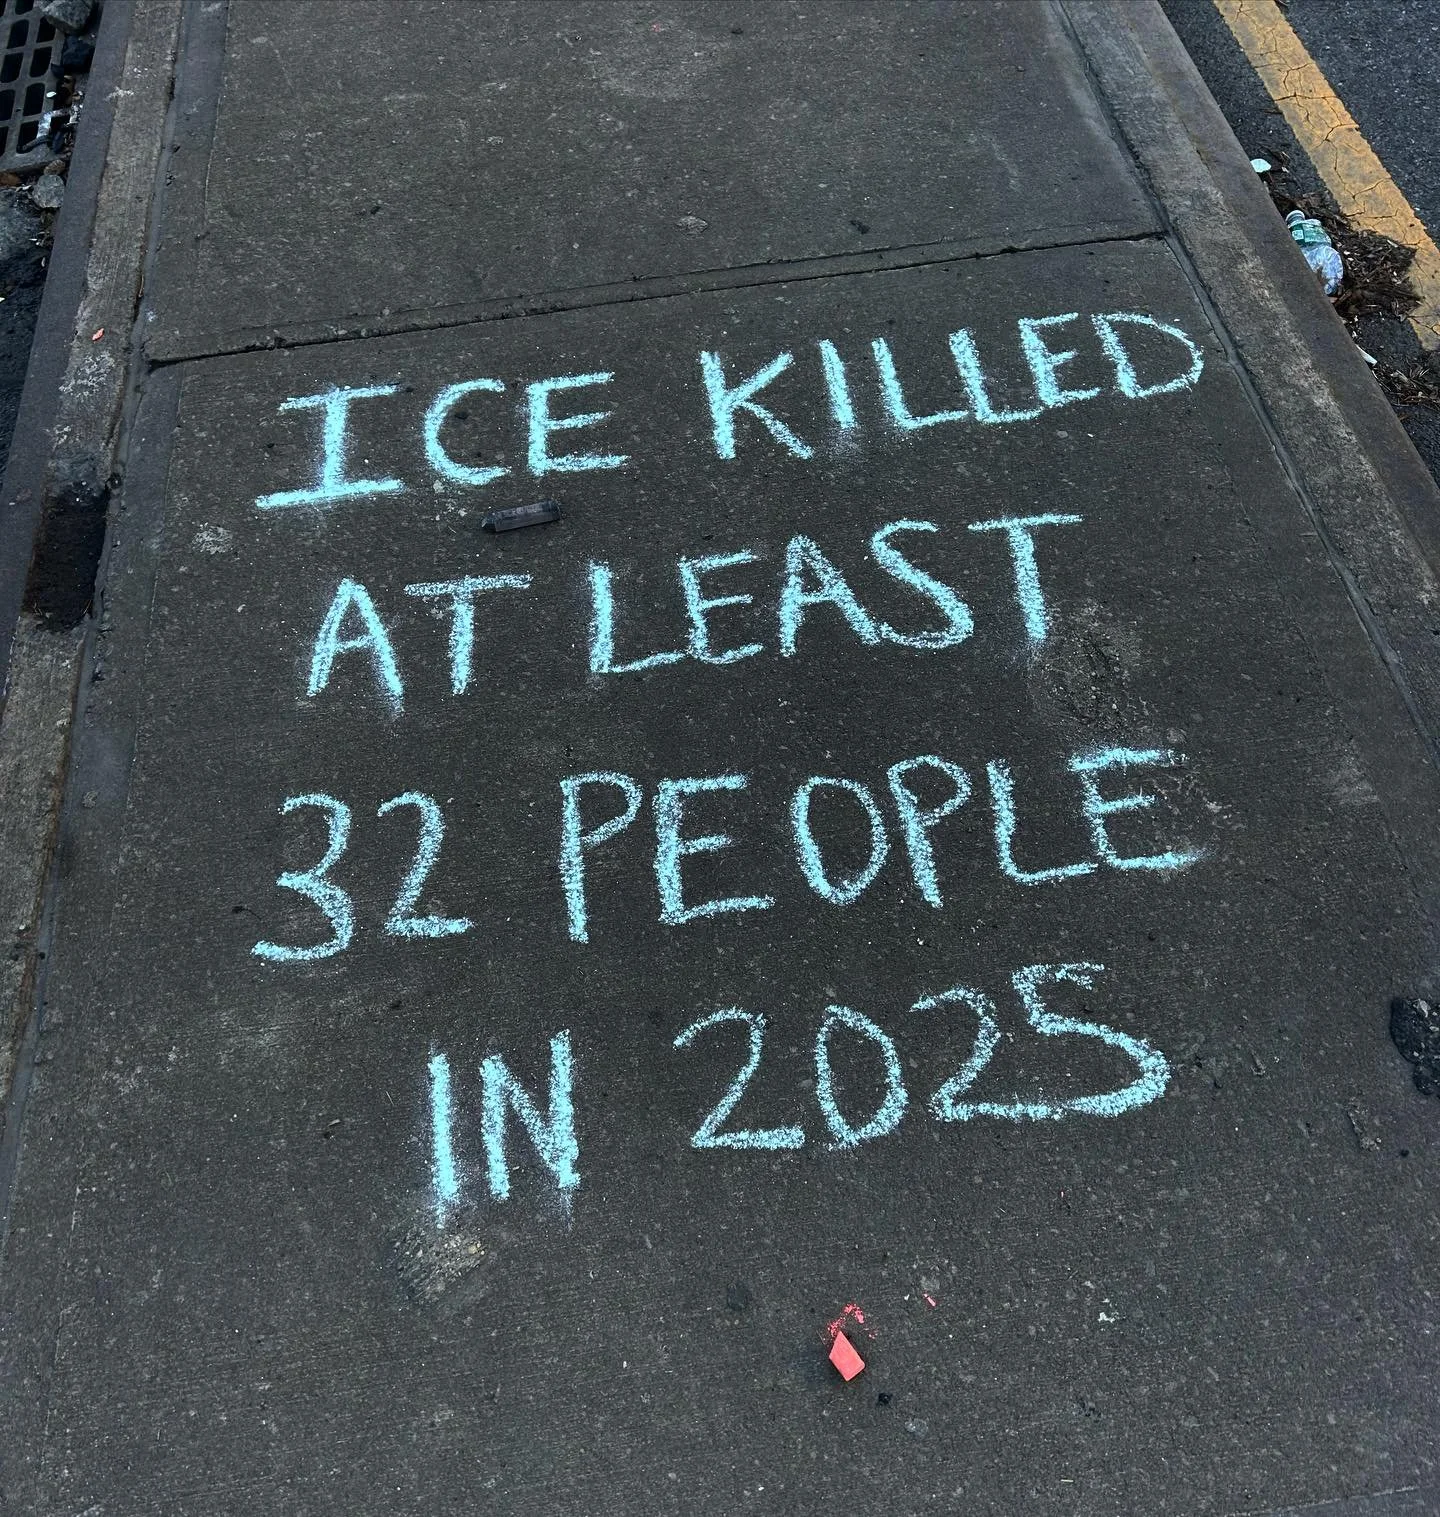 ICE KILLED
AT LEAST
32 PEOPLE
IN 2025